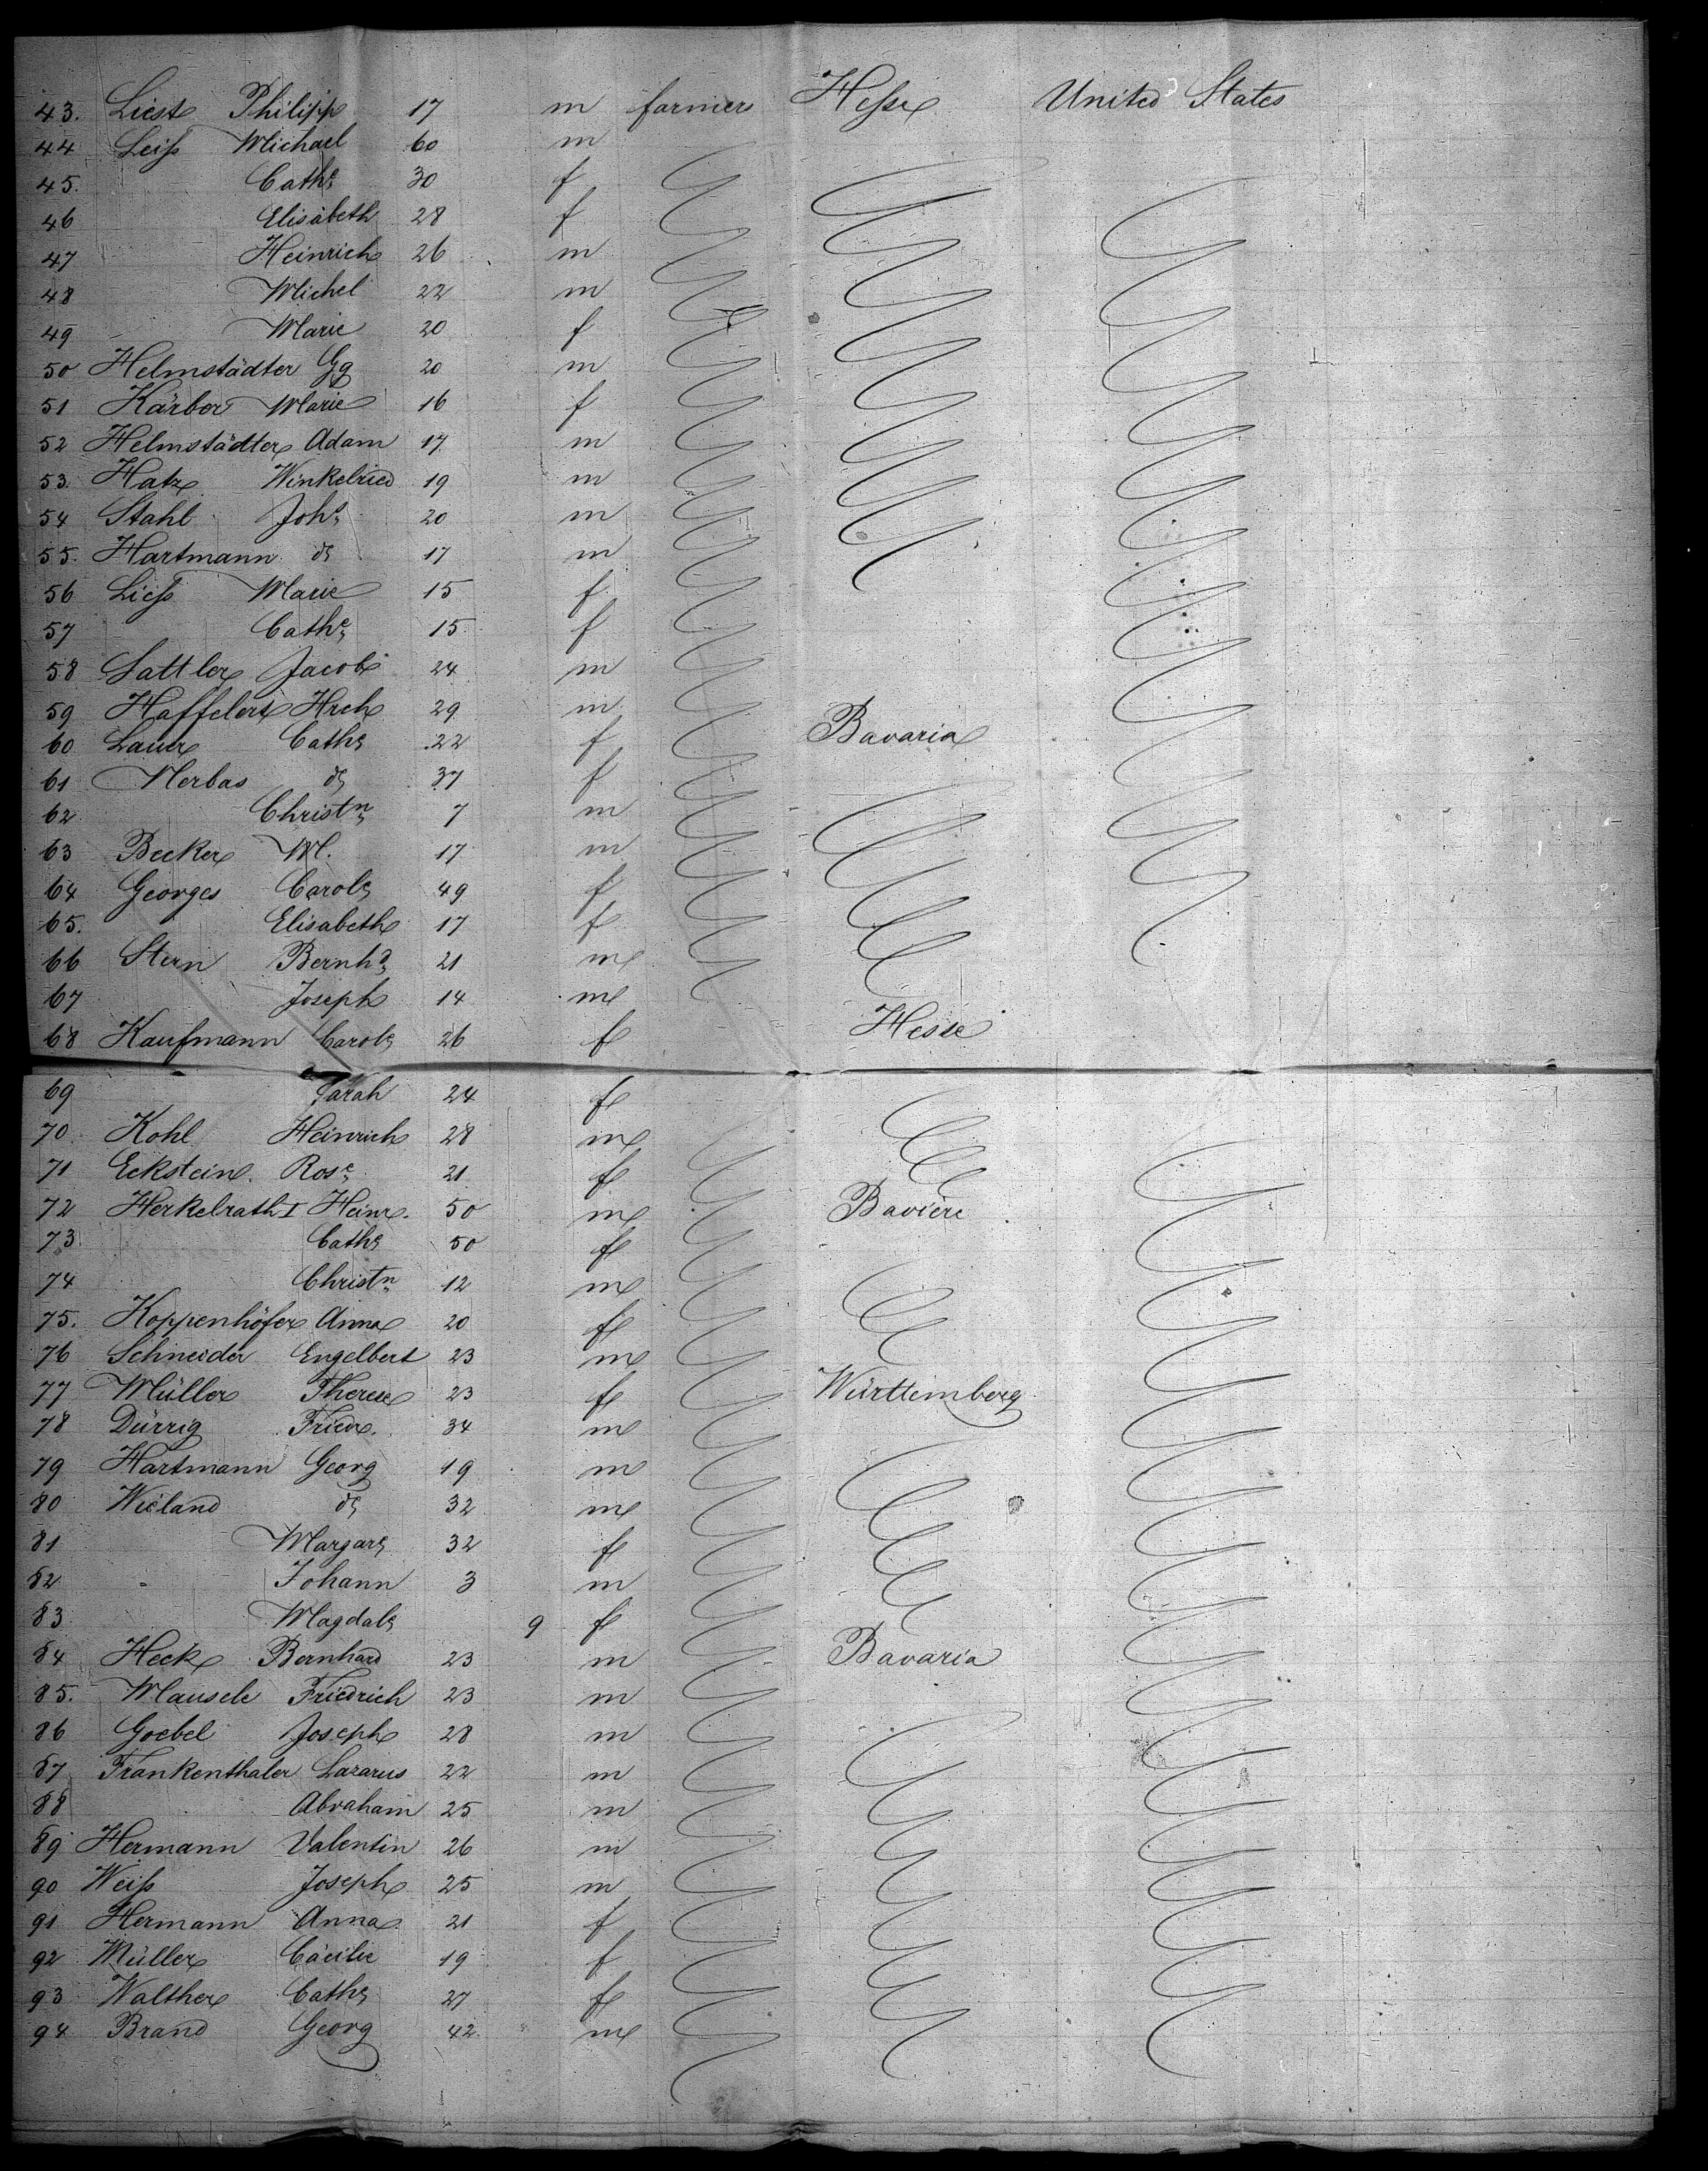 43. Liest Philipp 17 m farmers Heſse United States
44 Leiſs Michael 60 m
45. Cathe 30 f
46 Elisabeth 28 f
47 Heinrich 26 m
48 Michel 22 m
49 Marie 20 f
50 Helmstädter Gg 20 m
51 Kärber Marie 16 f
52 Helmstädter Adam 17 m
53. Hatz Winkelried 19 m
54 Stahl Johs 20 m
55. Hartmann do 17 m
56 Lieſs Marie 15 f
57 Cathe 15 f
58 Sattler Jacob 24 m
59 Haffelert Hrch 29 m
60 Lauer Cathe 22 f Bavaria
61 Merbas do 37 f
62 Christn 7 m
63 Becker M. 17 m
64 Georges Carole 49 f
65. Elisabeth 17 f
66 Stern Bernhd 21 m
67 Joseph 14 m
68 Kaufmann Carole 26 f Hesse
69 Sarah 24 f
70 Kohl Heinrich 28 m
71 Eckstein. Rose 21 f
72 Herkelrath I Heinr. 50 m Baviere
73 Cathe 50 f
74 Christn 12 m
75. Koppenhöfer Anna 20 f
76 Schneider Engelbert 23 m
77 Müller Therese 23 f Württemberg
78 Dürrig Friedr. 34 m
79 Hartmann Georg 19 m
80 Wieland do 32 m
81 Margare 32 f
82 Johann 3 m
83 Magdale 9 f
84 Heck Bernhard 23 m Bavaria
85. Mausele Friedrich 23 m
86 Goebel Joseph 28 m
87 Frankenthaler Lazarus 22 m
88 Abraham 25 m
89 Hermann Valentin 26 m
90 Weiſs Joseph 25 m
91 Hermann Anna 21 f
92 Müller Cäcilie 19 f
93 Walther Cathe 27 f
94 Brand Georg 42 m